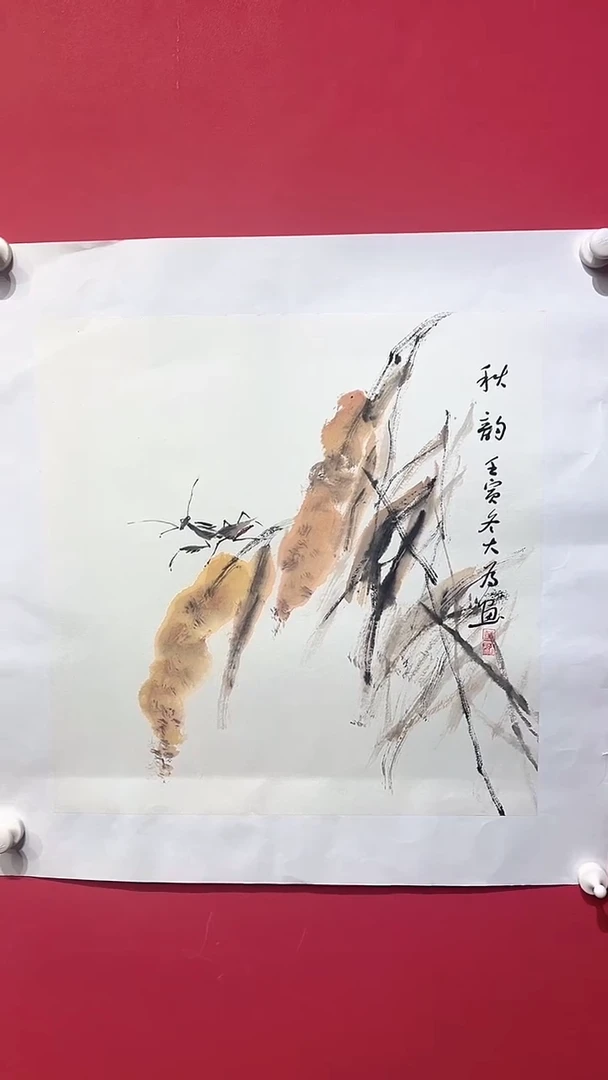 秋韵壬寅冬大为画